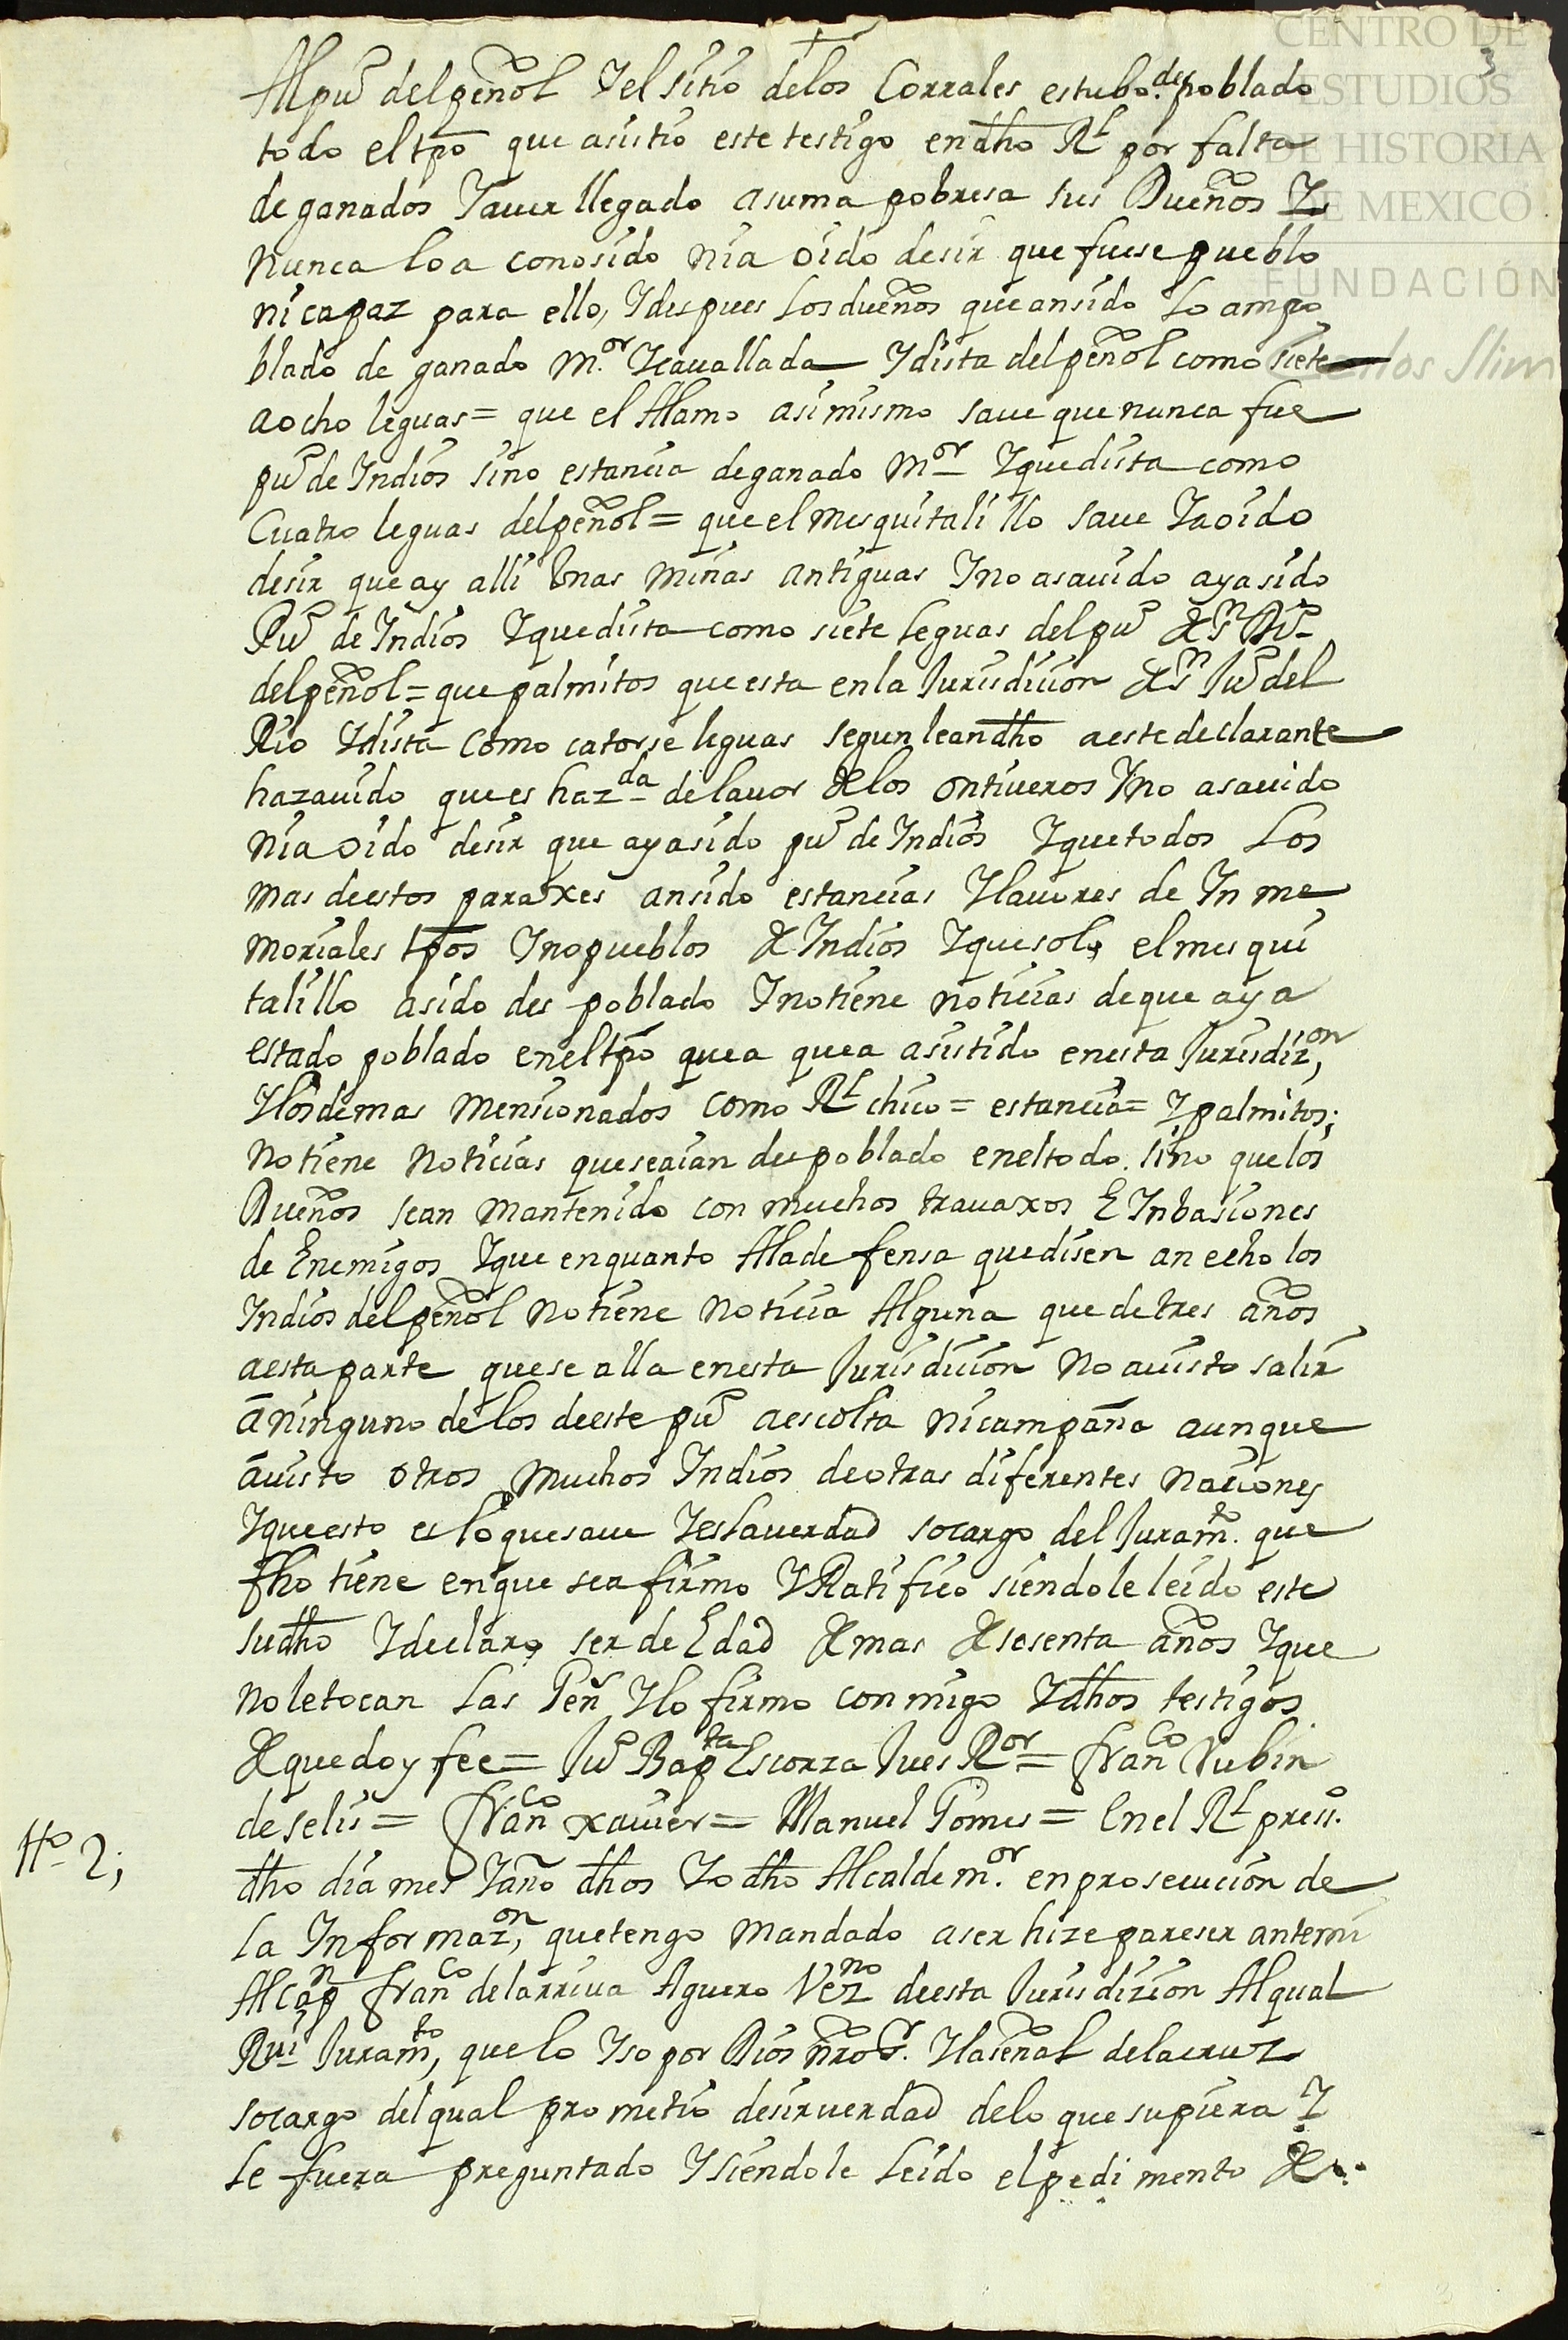 CENTRO DE
ESTUDIOS
DE HISTORIA
DE MEXICO
FUNDACIÓN
Carlos Slim
3
Al pu.º del peñol Y el sitio de los Corrales estubo des poblado
todo el tpõ que asistio este testigo en dho Rl por falta
de ganados Y auer llegado a suma pobresa sus Dueños Y
nunca lo a conosido ni a oido desir que fuese pueblo
ni capaz para ello, Y despues los dueños que an sido lo am po
blado de ganado M.or Y cauallada Y dista del peñol como siete
a ocho leguas = que el Alamo asimismo saue que nunca fue
pu.º de Indios sino estancia de ganado Mor Y que dista como
Cuatro leguas del peñol = que el mesquitalillo saue Y a oido
desir que ay alli Unas minas antiguas Y no a sauido aya sido
Pu.º de Indios Y que dista como siete leguas del pu.º de Sn
del peñol = que palmitos que esta en la Jurisdicion de Sn Ju.º del
Rio Y dista como catorse leguas segun le an dho a este declarante
ha zauido que es hazda de lauor de los ontiueros Y no a sauido
ni a oido desir que aya sido pu.º de Indios Y que todos los
mas de estos paraxes an sido estancias Y lauores de In me
moriales tpõs Y no pueblos de Indios Y que solo el mesqui
talillo a sido des poblado Y no tiene noticias de que aya
estado poblado en el tpõ que a que a asistido en esta Jurisdizon,
Y los demas mensionados como Rl chico = estancia = Y palmitos;
no tiene noticias que se aian des poblado en el todo. sino que los
Dueños se an mantenido con muchos trauaxos E Inbasiones
de Enemigos Y que en quanto A la de fensa que disen an echo los
Indios del peñol no tiene noticia Alguna que de tres años
a esta parte que se alla en esta Jurisdicion no a uisto salir
a ninguno de los de este pu.º a escolta ni campaña aunque
a uisto otros muchos Indios de otras diferentes naciones
Y que esto es lo que saue Y es la uerdad so cargo del Juramto. que
fho tiene en que se a firmo Y Ratifico siendole leido este
su dho Y declaro ser de Edad de mas de sesenta años Y que
no le tocan las Gen Y lo firmo conmigo Y dhos testigos
de que doy fee = Ju.º Bapta Escorza Jues Ror = franco Rubin
de selis = franco xauier = Manuel Gomes = En el Rl press.º
Ho 2;
dho dia mes Y año dhos Yo dho Alcalde m.or en prosecucion de
la Informazon, que tengo mandado aser hize pareser ante mi
Al capn franco de la rriua Aguero Vezno de esta Jurisdizion Al qual
Rui Juramto, que lo Yso por Dios nro Sr. Y la señal de la cruz
so cargo del qual prometio desir uerdad de lo que supiera Y
le fuera preguntado Y siendole leido el pedimento de